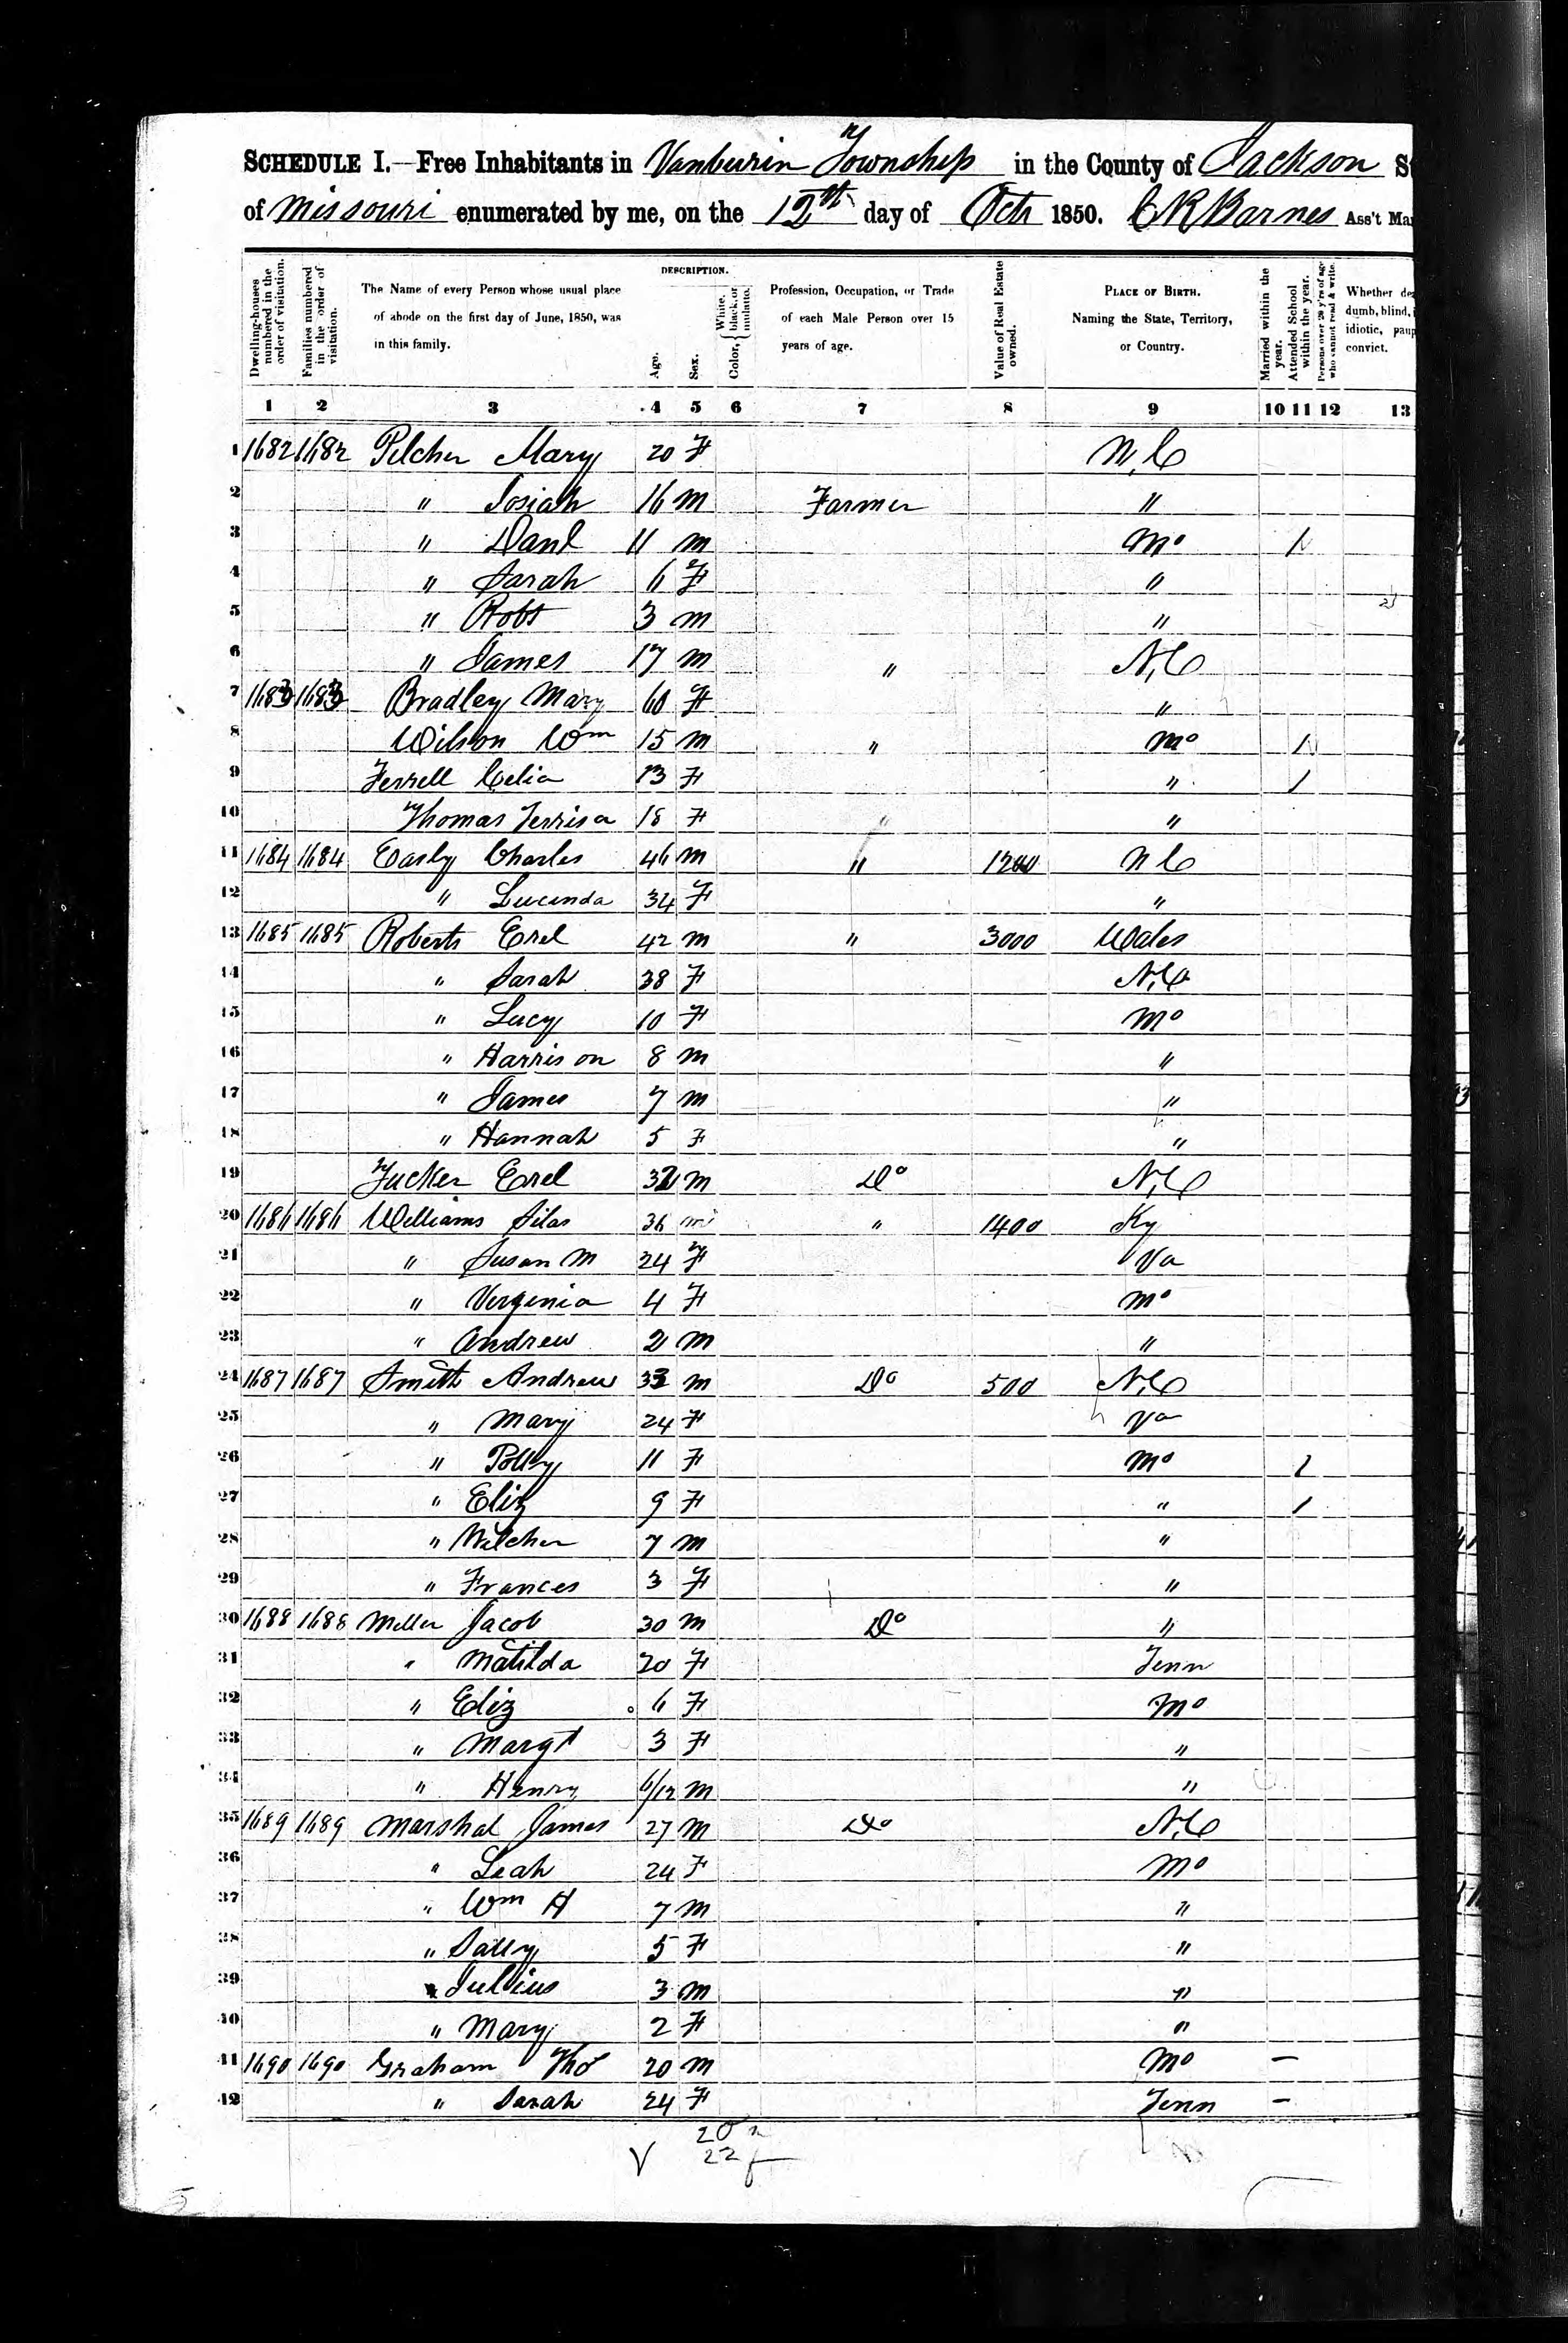 SCHEDULE I.—Free Inhabitants in Vanbeurin Township in the County of Jackson
of Missouri enumerated by me, on the 12th day of Octr 1850. C R Barnes Ass't Mar
Dwelling-houses numbered in the order of visitation.
Families numbered in the order of visitation.
The Name of every Person whose usual place of abode on the first day of June, 1850, was in this family.
DESCRIPTION.
Age.
Sex.
Color, { White, black, or mulatto.
Profession, Occupation, or Trade of each Male Person over 15 years of age.
Value of Real Estate owned.
PLACE OF BIRTH. Naming the State, Territory, or Country.
Married within the year.
Attended School within the year.
Persons over 20 y'rs of age who cannot read & write.
Whether dea dumb, blind, i idiotic, paup convict.
1 2 3 4 5 6 7 8 9 10 11 12 13
1 1682 1682 Pilcher Mary 20 F N,C
2 " Josiah 16 M Farmer "
3 " Danl 11 M Mo 1
4 " Sarah 6 F "
5 " Robt 3 M "
6 " James 17 M " N,C
7 1683 1683 Bradley Mary 60 F "
8 Wilson Wm 15 M " Mo 1
9 Ferrell Celia 13 F " 1
10 Thomas Terrisa 18 F " "
11 1684 1684 Early Charles 46 M " 1200 N C
12 " Lucinda 34 F "
13 1685 1685 Roberts Erel 42 M " 3000 Wales
14 " Sarah 38 F N,C
15 " Lucy 10 F Mo
16 " Harrison 8 M "
17 " James 7 M "
18 " Hannah 5 F "
19 Tucker Erel 32 M Do N,C
20 1686 1686 Williams Silas 36 M " 1400 Ky
21 " Susan M 24 F Va
22 " Verginia 4 F Mo
23 " Andrew 2 M "
24 1687 1687 Smith Andrew 33 M Do 500 N,C
25 " Mary 24 F Va
26 " Polly 11 F Mo 1
27 " Eliz 9 F " 1
28 " 7 M "
29 " Frances 3 F "
30 1688 1688 Miller Jacob 30 M Do "
31 " Matilda 20 F Tenn
32 " Eliz 6 F Mo
33 " Margt 3 F "
34 " Henry 6/12 M "
35 1689 1689 Marshal James 27 M Do N,C
36 " Leah 24 F Mo
37 " Wm H 7 M "
38 " Sally 5 F "
39 " Julius 3 M "
40 " Mary 2 F "
41 1690 1690 Graham Thos 20 M Mo –
42 " Sarah 24 F Tenn –
20 m
22 f